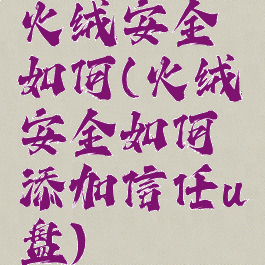 火绒安全
如何(火绒
安全如何
添加信任u
盘)